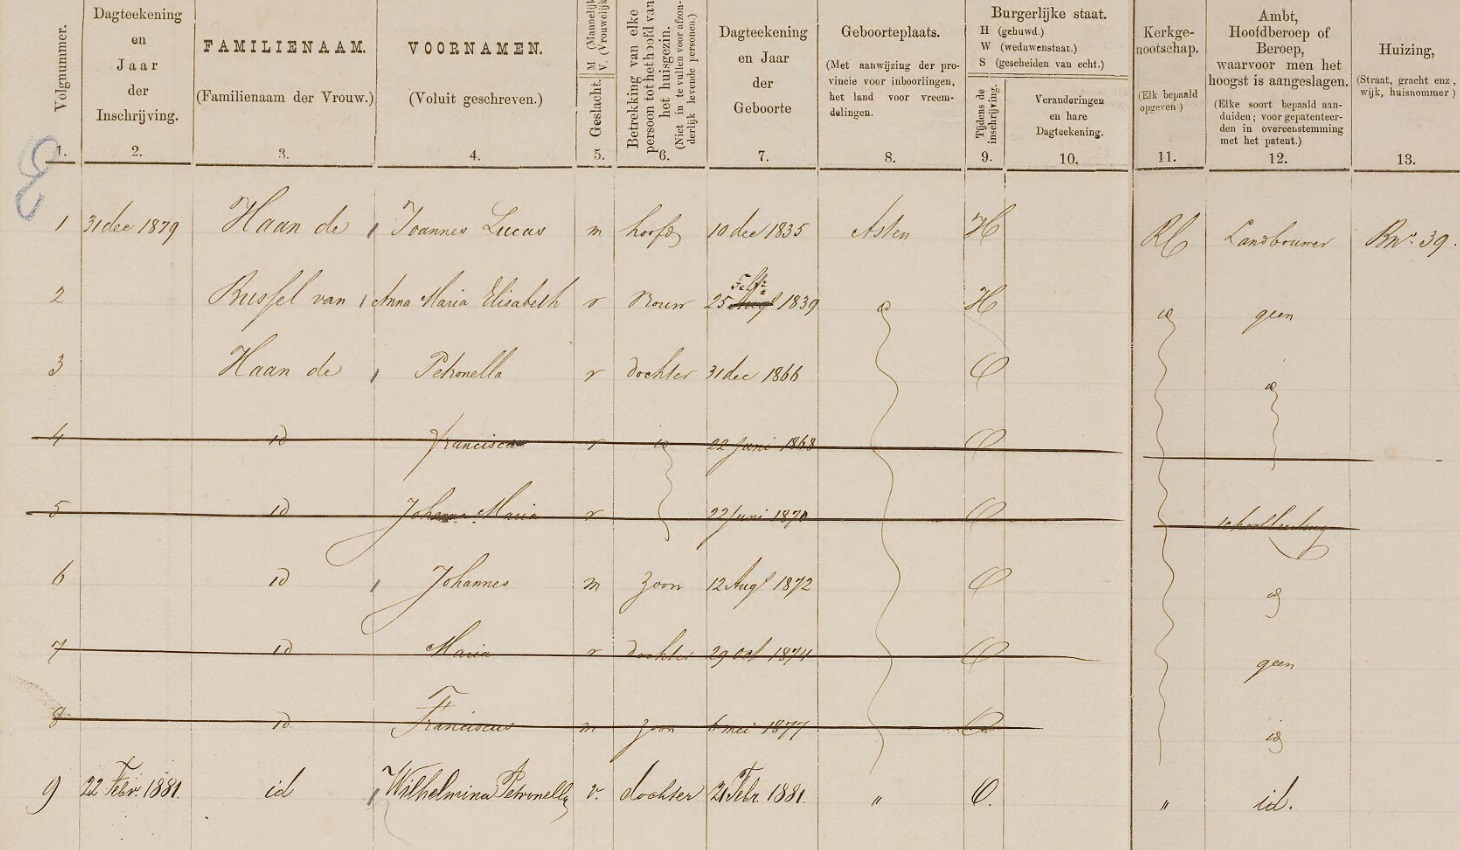 Volgnummer.
1.
Dagteekening
en
Jaar
der
Inschrijving.
2.
FAMILIENAAM.
(Familienaam der Vrouw.)
3.
VOORNAMEN.
(Voluit geschreven.)
4.
Geslacht.
M (Mannelijk)
V. (Vrouwelijk)
5.
Betrekking van elke
persoon tot het hoofd van
het huisgezin.
(Niet in te vullen voor afzon-
derlijk levende personen.)
6.
Dagteekening
en Jaar
der
Geboorte
7.
Geboorteplaats.
(Met aanwijzing der pro-
vincie voor inboorlingen,
het land voor vreem-
delingen.
8.
Burgerlijke staat.
H (gehuwd.)
W (weduwenstaat.)
S (gescheiden van echt.)
Tijdens de
inschrijving.
9.
Veranderingen
en hare
Dagteekening.
10.
Kerkge-
nootschap.
(Elk bepaald
opgeven)
11.
Ambt,
Hoofdberoep of
Beroep,
waarvoor men het
hoogst is aangeslagen.
(Elke soort bepaald aan-
duiden; voor gepatenteer-
den in overeenstemming
met het patent.)
12.
Huizing,
(Straat, gracht enz,
wijk, huisnommer)
13.
1 31 dec 1879 Haan de Joannes Lucas m hoofd 10 dec 1835 Asten H RC Landbouwer B no. 39.
2 Bussel van Anna Maria Elisabeth v vrouw 25 Febr. 1839 id H id geen
3 Haan de Petronella v dochter 31 dec 1866 O id
4 id Francisca v id 22 Juni 1868 O
5 id Johanna Maria v 22 Juni 1870 O
6 id Johannes m zoon 12 Augt 1872 O id
7 id Maria v dochter 29 Oct 1874 O geen
8 id Franciscus m zoon 6 mei 1877 O id
9 22 Febr. 1881. id Wilhelmina Petronella v. dochter 21 Febr. 1881. " O. " id.